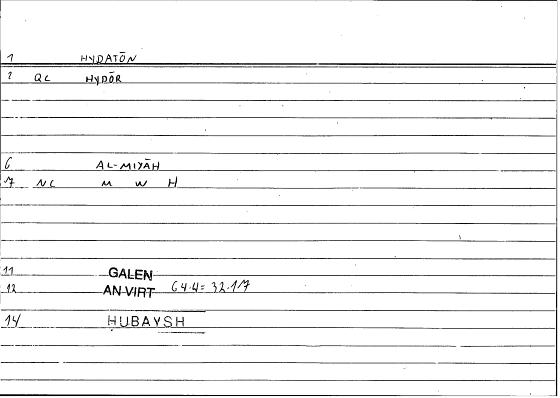 1 HYDATŌN
2 QL HYDŌR
6 AL-MIYĀH
7 NL M W H
11 GALEN
12 AN VIRT 64.4= 32.1/7
14 ḤUBAYSH